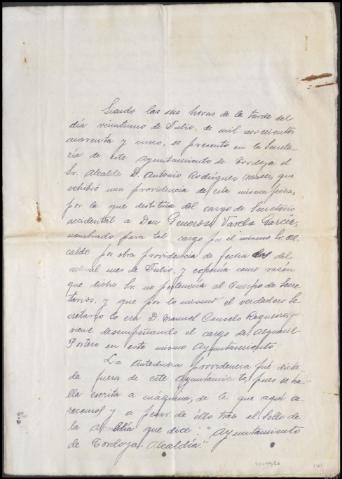 Siendo las seis horas de la tarde del
día veintiuno de Julio, de mil novecientos
cuarenta y cinco, se presentó en la Secreta-
ría de este Ayuntamiento de Tordoya el
Sr. Alcalde D. Antonio Rodríguez que
exhibió una providencia de esta misma fecha,
por la que destituía del cargo de Secretario
accidental a Don Generoso Varela García,
nombrado para tal cargo por el mismo Sr. Al-
calde por otra providencia de fecha del
mes de Julio, y exponía como razón
que dicho Sr. no pertenecía al Cuerpo de Secre-
tarios, y que por lo mismo el verdadero Se-
cretario lo era D. Manuel Regueiro, que
viene desempeñando el cargo de Alguacil
Portero en este mismo Ayuntamiento.
La antedicha providencia fué dicta-
da fuera de este Ayuntamiento, pues se ha-
lla escrita a máquina, de la que aquí se
carecemos y a pesar de ello trae el sello de
la que dice: "Ayuntamiento
de Tordoya. Alcaldía"